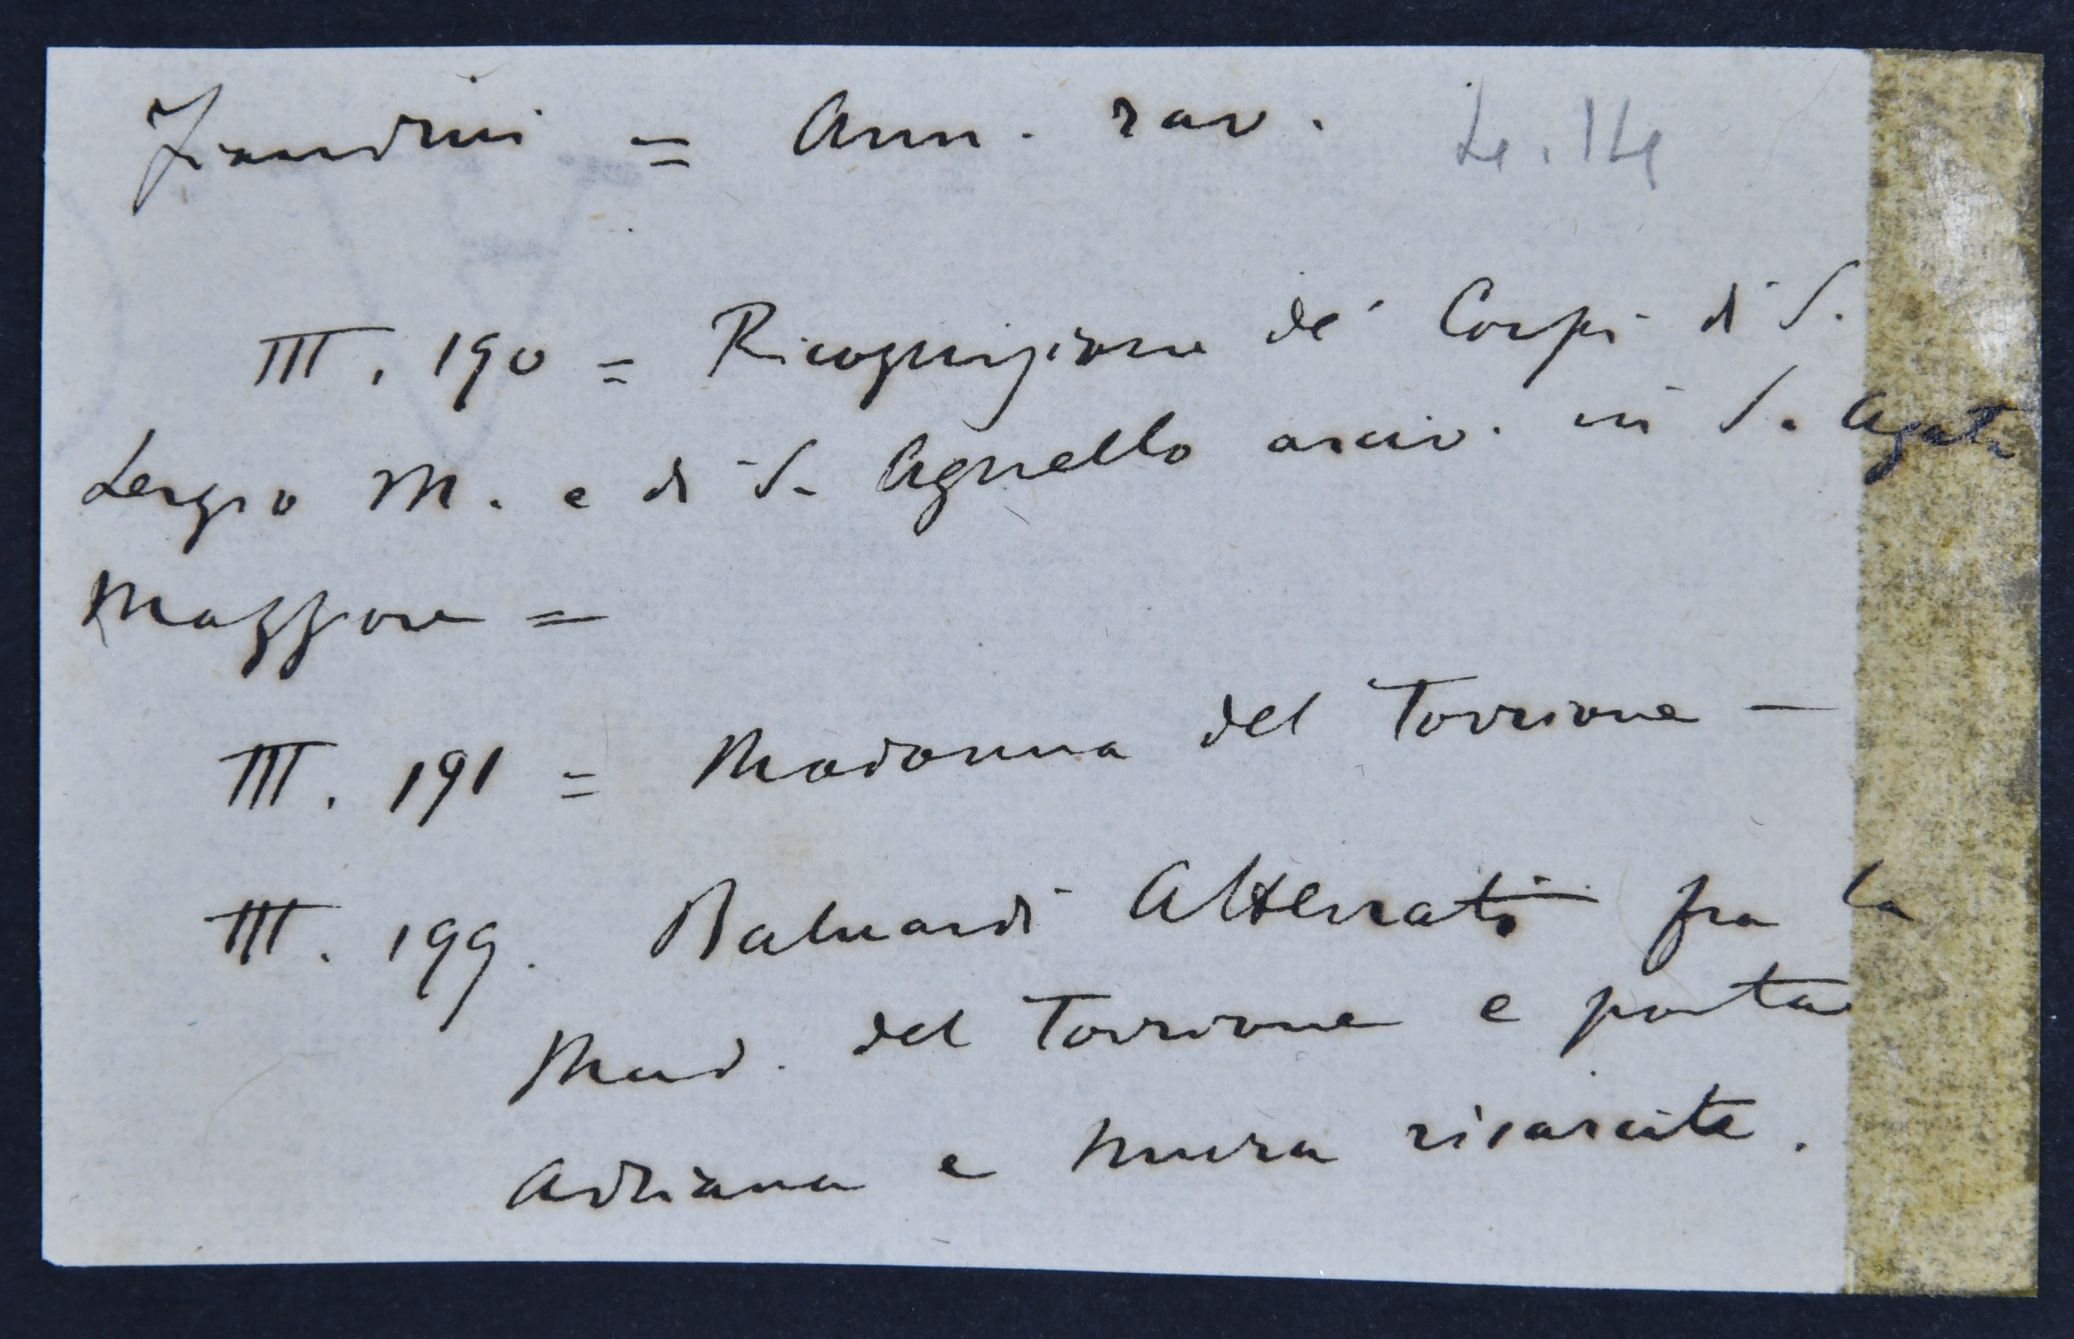 Fiandrini = Ann. rav. 4.14
III. 190 = Ricognizione de' Corpi di S.
Sergio M. e di S. Agnello arciv. in S. Agata
Maggiore =
III. 191 = Madonna del Torrione —
III. 199. Baluardi Atterrati fra la
Mad. del Torrione e porta
Adriana e mura risarcite.